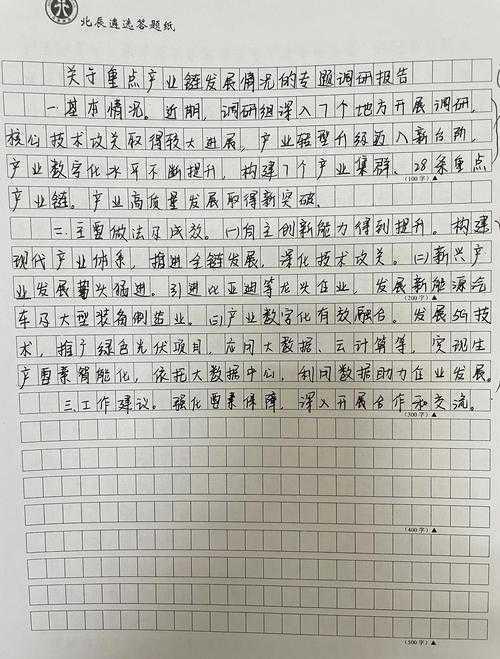 北辰遴选答题纸
关于重点产业链发展情况的专题调研报告
一.基本情况。近期,调研组深入7个地方开展调研,
核心技术攻关取得较大进展,产业转型升级迈入新台阶,
产业数字化水平不断提升,构建7个产业集群、28条重点
(100字)▲
产业链。产业高质量发展取得新突破.
二.主要做法及成效。(一)自主创新能力得到提升。构建
现代产业体系,推进全链发展,深化技术攻关。(二)新兴产
业发展势头强进。引进比亚迪等龙头企业,发展新能源汽
(200字)▲
车及大型装备制造业。(三)产业数字化有效融合。发展5G技
术,推广绿色光伏项目,应用大数据、云计算等,实现生
产要素智能化,依托大数据中心,利用数据助力企业发展。
三.工作建议。强化要素保障,深入开展合作和交流。
(300字)▲
(400字)▲
(500字)▲